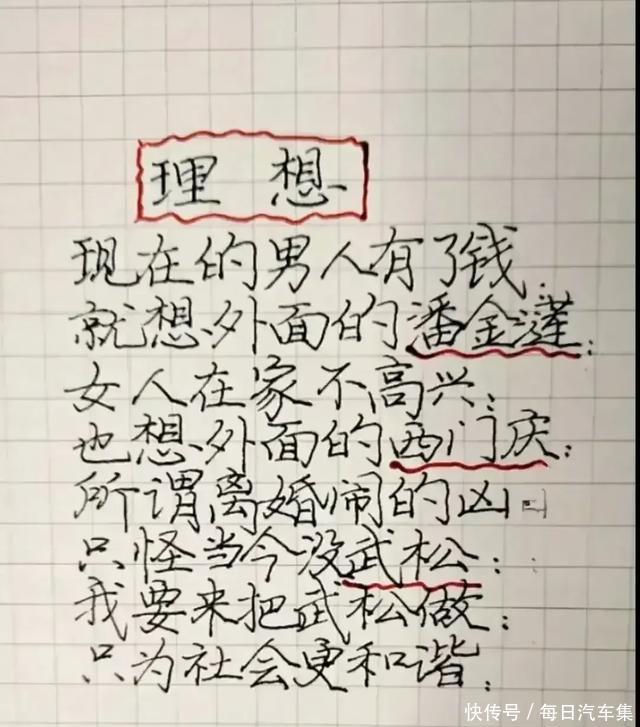 理想
现在的男人有了钱;
就想外面的潘金莲;
女人在家不高兴;
也想外面的西门庆;
所谓离婚闹的凶
只怪当今没武松;
我要来把武松做;
只为社会更和谐;
快传号/每日汽车集